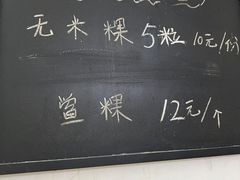 无米粿5粒10元/份
鲎粿 12元/个